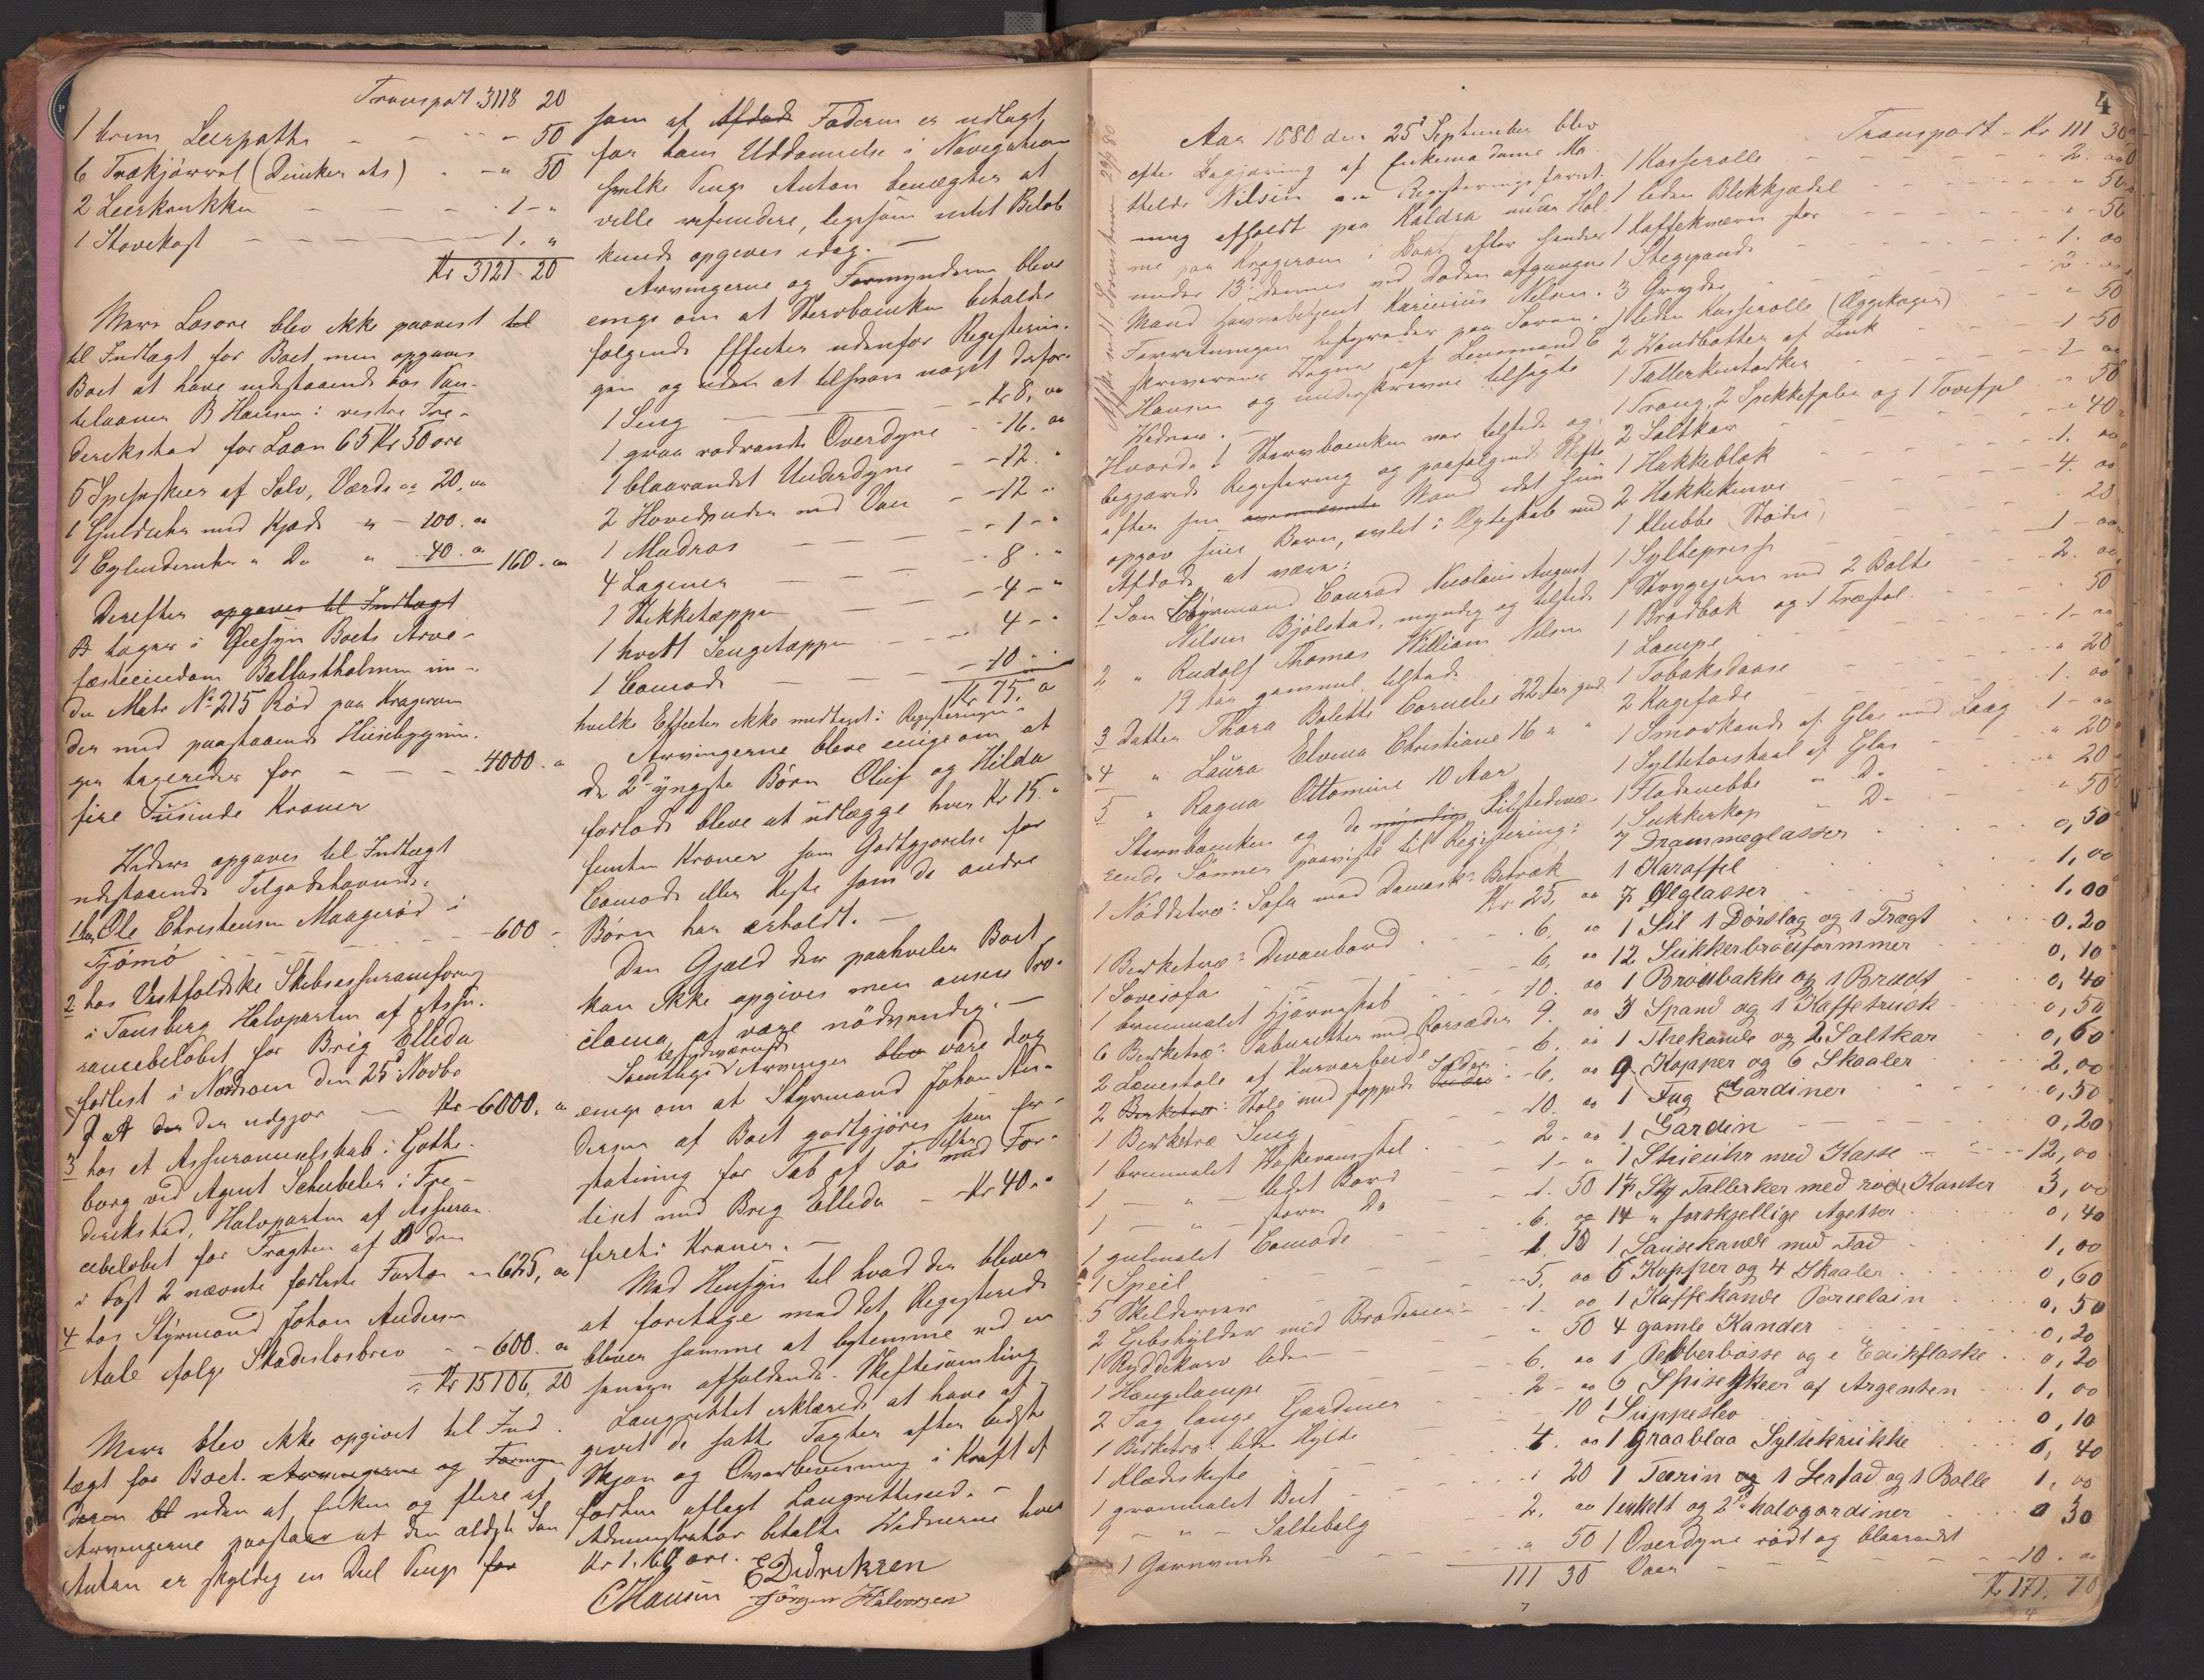 Transport 3118 20
1 brun Leerpotte - - - 50
6 Trækjørrel (Dunker ats) - - " 50
2 Leerkrukker - - - 1 - "
1 Stovekost - - - 1. "
Kr 3121. 20
Mere Løsøre blev ikke paavist
til Indtægt for Boet men opgaves
Boet at have udestaaende hos Pan-
telaaner B Hansen i vestre Fre-
derikstad for Laan 65 Kr 50 øre
5 Spiseskeer af Sølv, Værdi " 20, "
1 Guldtuhr med Kjæde " - 100. "
1 Cylinderuhr " Do " 40. " 160. "
Derefter opgaves til Indtægt
B toges i Øiesyn Boets Arve-
fæsteeiendom Ballastholmen un-
der Matr No 215 Rød paa Kragerøen
der med paastaaende Huusbygnin-
ger toges for - - - 4000. "
fire Tusinde Kroner
Videre opgaves til Indtægt
udestaaende Tilgodehavende:
1 hos Ole Christensen Maagerød i
Tjømø - - - 600 -
2 hos Vestfoldske Skibsassuranceforening
i Tønsberg Halvparten af Assu-
rancebeløbet for Brig Elleda
forlist i Nordsøen den 25de Novbr
f at der den udgjør - Kr 6000. "
3 hos et Assuranceselskab i Gothe-
borg ved Agent Schubeler i Fre-
derikstad, Halvparten af Assuran-
cebeløbet for Fragten af den
i Post 2 nævnte forliste Fartøi - 625, "
4 hos Styrmand Johan Andersen
Aale ifølge Skadesløsbrev - - 600. "
Kr 15106, 20
Mere blev ikke opgivet til Ind-
tægt for Boet. Arvingerne og Formyn-
deren uden at Enken og flere af
Arvingerne paastaar at den ældste Søn
Anton er skyldig en Deel Penge for
som af Afdøde Faderen er udlagt
for hans Uddannelse i Navigation
hvilke Penge Anton benægter at
ville refundere, ligesom intet Beløb
kunde opgives idag. -
Arvingerne og Formynderne bleve
enige om at Stervboenken beholder
følgende Effecter udenfor Registerin-
gen og uden at tilsvare noget derfor:
1 Seng - - - Kr 8, "
1 graa rødrandt Overdyne - 16. "
1 blaarandet Underdyne - 12. "
2 Hovedpuder med Vaer - 12 - "
1 Madras - - - 1 - "
4 Lagener - - - 8. "
1 Stikketæppe - - - 4 - "
1 hvidt Sengetæppe - - - 4 - "
1 Comode - - - 10 - "
Kr 75, "
hvilke Effecter ikke medtoges i Registeringen.
Arvingerne bleve enige om at
de 2de yngste Børn Oluf og Hilda
forlods bleve at udlægge hver Kr 15. "
femten Kroner som Godtgjørelse for
Comode eller Kiste som de andre
Børn har erholdt. -
Den Gjæld der paahviler Boet
kan ikke opgives men ansees Pro-
clama at være nødvendig. -
Samtlige tilstedeværende Arvinger blev vare dog
enige om at Styrmand Johan An-
dersen af Boet godtgjøres som Er-
statning for Tab af Tøi efter For-
liset med Brig Elleda - Kr 40. "
fireti Kroner. -
Med Hensyn til hvad der bliver
at foretage med det Registerede
bliver samme at bestemme ved en
senere afholdende Skiftesamling
Laugrettet erklærede at have af-
givet de satte Taxter efter bedste
Skjøn og Overbeviisning i Kraft af
forhen aflagt Laugrettesed. -
Administrator betalte Vidnerne hver
Kr 1.60 øre.
E Didriksen
C Hansen Jörgen Halvorsen
4
Aar 1880 den 25de September blev
efter Begjæring af Enkemadame Ma-
thilde Nilsen en Registeringsforret-
ning afholdt paa Kaldra under Hol-
me paa Kragerøen i Boet efter hendes
under 13de dennes ved Døden afgangne
Mand Havnebetjent Karinius Nilsen.
Forretningen bestyredes paa Soren-
skriverens Vegne af Lensmand C
Hansen og underskrevne tilsagte
Vidner. -
Hvorda! Stervboenken var tilstede og
begjærede Registering og paafølgende Skifte
efter sin Mand idet hun
opgav sine Børn, avlet i Ægteskab med
Afdøde at være:
1 Søn Styrmand Conrad Nicolaus August
Nilsen Bjølstad, myndig og tilstede
2 " Rudolf Thomas William Nilsen
19 Aar gammel, tilstede
3 Datter Thora Bolette Cornelie 22 Aar gml.
4 " Laura Elvina Christiane 16 " "
5 " Ragna Ottomine 10 Aar
Stervboenken og de myndige Tilstedevæ-
rende Sønner paaviste til Registering:
1 Nøddetræs Sofa med Damask Betræk
Kr 25, "
1 Birketræs Divanbord - 6. "
1 Sovesofa - - 6, "
1 brunmalet Hjørneskab - 10. "
6 Birketræs Taburetter med Rørsæder 9. "
2 Lænestole af Kurvarbeide - 6. "
2 Birketræs Stole med stoppede Sæder - 6, "
1 Birketræ Seng - - 10. "
1 brunmalet Vaskevandsstol - 2 - "
1 - " - lidet Bord - 1 - "
1 - " - større Do - 1. 50
1 gulmalet Comode - - 6. "
1 Speil - - - 1. 50
5 Skilderier - - 5, "
2 Gibshylder med Broderier - 1. "
1 Ryddekurv liden - - " 50
1 Hængelampe - - 6. "
2 Fag lange Gardiner - 2 - "
1 Birketræs liden Hylde - 10
1 Klædeskiste - - 4. "
1 grønmalet But - - " 20
1 - " - Saltebalg - 2. "
1 Garnvinde - - " 50
111 30
Transport - Kr 111 30
1 Kasserolle - - - 2. 00
1 liden Blikkjædel - - " 50
1 Kaffekværn stor - - " 50
1 Stegepande - - 1. 00
3 Gryder - - 2. 00
1 liden Kasserolle (Æggekoger) - " 50
2 Vandbøtter af Zink - 1 - 50
1 Tallerkentørker - - 1 - 00
1 Traug, 2 Spekkefjæle og 1 " 50
2 Saltkar - - " 40
1 Hakkeblok - - 1. 00
2 Hakkeknive - - 4. 00
1 Klubbe (Støder) - - 20
1 Syltepresse - - 1 - 00
1 Strygejern med 2 Bolte - 2. 00
1 Brødbak og 1 Træstol - 50
1 Lampe - - 1 - 00
1 Tobaksdaase - - " 20
2 Kagefade - - 1. 00
1 Smørkande af Glas med Laag - 1 - 00
1 Syltetøisskaal af Glas - " 20
1 Flødenebbe " Do " 20
1 Sukkerkop " Do " 50
7 Drammeglasser 0,50
1 Karaffel 1,00
7 Ølglasser 1.00
1 Sil 1 Dørslag og 1 Tragt 0.20
12 Sukkerbrødformmer 0,10
1 Brødbakke og 1 Bradt 0,40
3 Spand og 1 Kaffetrusk 0,50
1 Thekande og 2 Saltkar 0,60
9 Kopper og 6 Skaaler 2,00
1 Fag Gardiner 0,50
1 Gardin 0,20
1 Stueuhr med Kasse 12,00
17 Stk Tallerker med røde Kanter 3,00
14 " forskjellige Agetter 0,40
1 Sausekande med Fad 1,00
6 Kopper og 4 Skaaler 0,60
1 Kaffekande Porcelain 0,50
4 gamle Kander 0,20
1 Peberbøsse og 1 Edikflaske 0,20
6 Spiseskeer af Argenten 1,00
1 Suppeslev 0,10
1 Graablaa Syltekrukke 0,40
1 Terrin og 1 Lerfad og 1 Bolle 1,00
1 enkelt og 2de halvgardiner 0 30
1 Overdyne rødt og blaarandet
Vaer - - - 10. "
Kr 171. 70